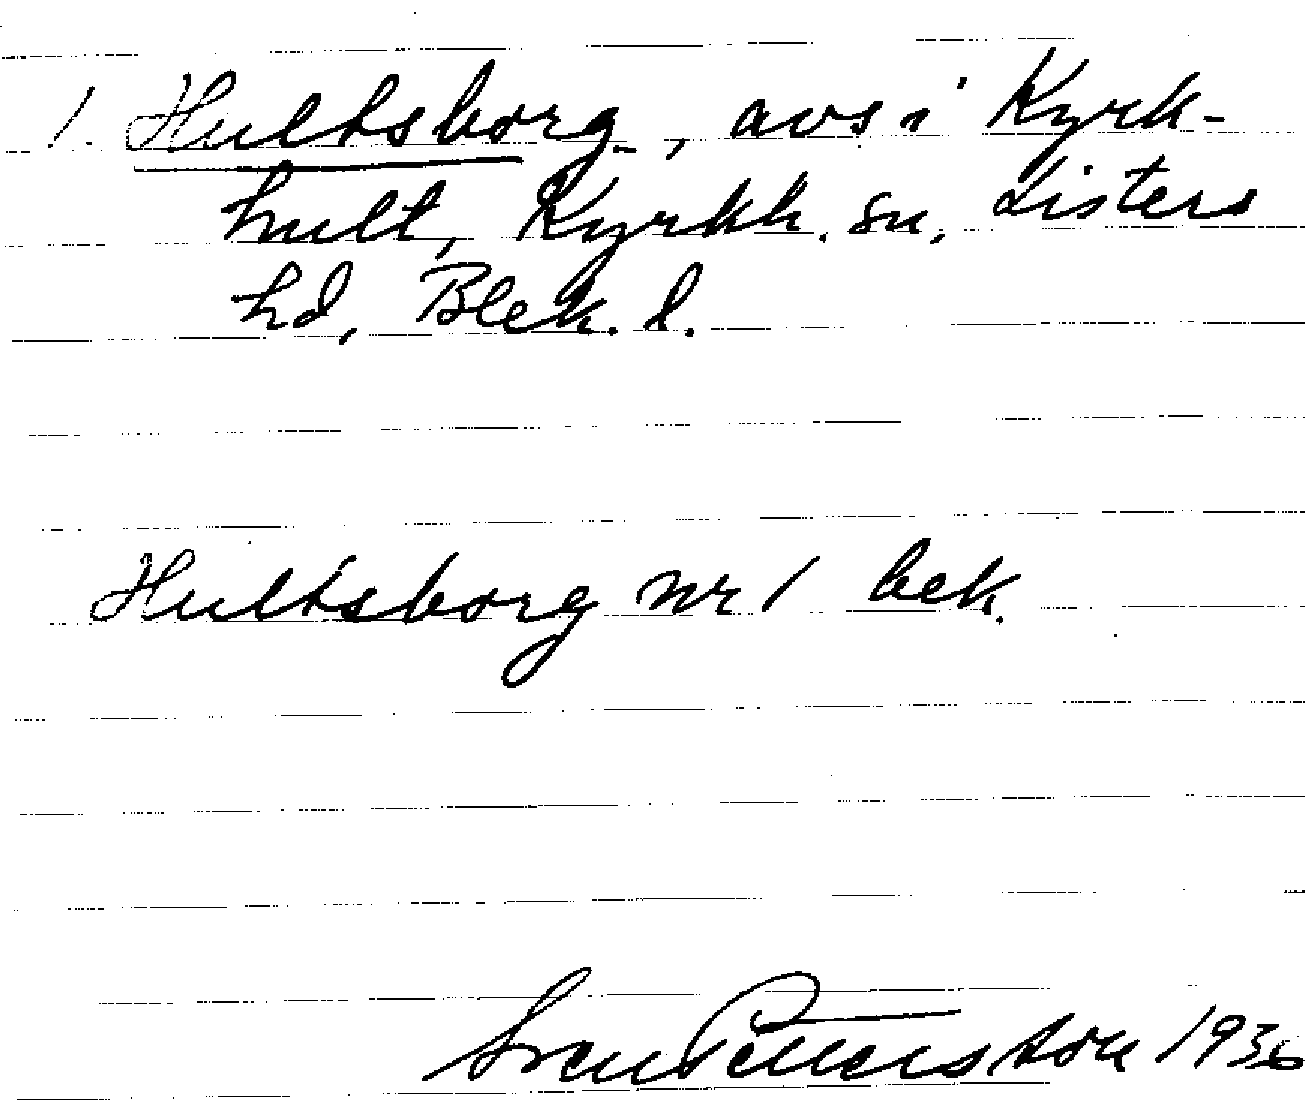 1. Hultsborg, avs i Kyrk-
hult, Kyrkh. sn, Listers
hd, Blek. l.
Hultsborg nr 1 bek.
Sven Pettersson 1936